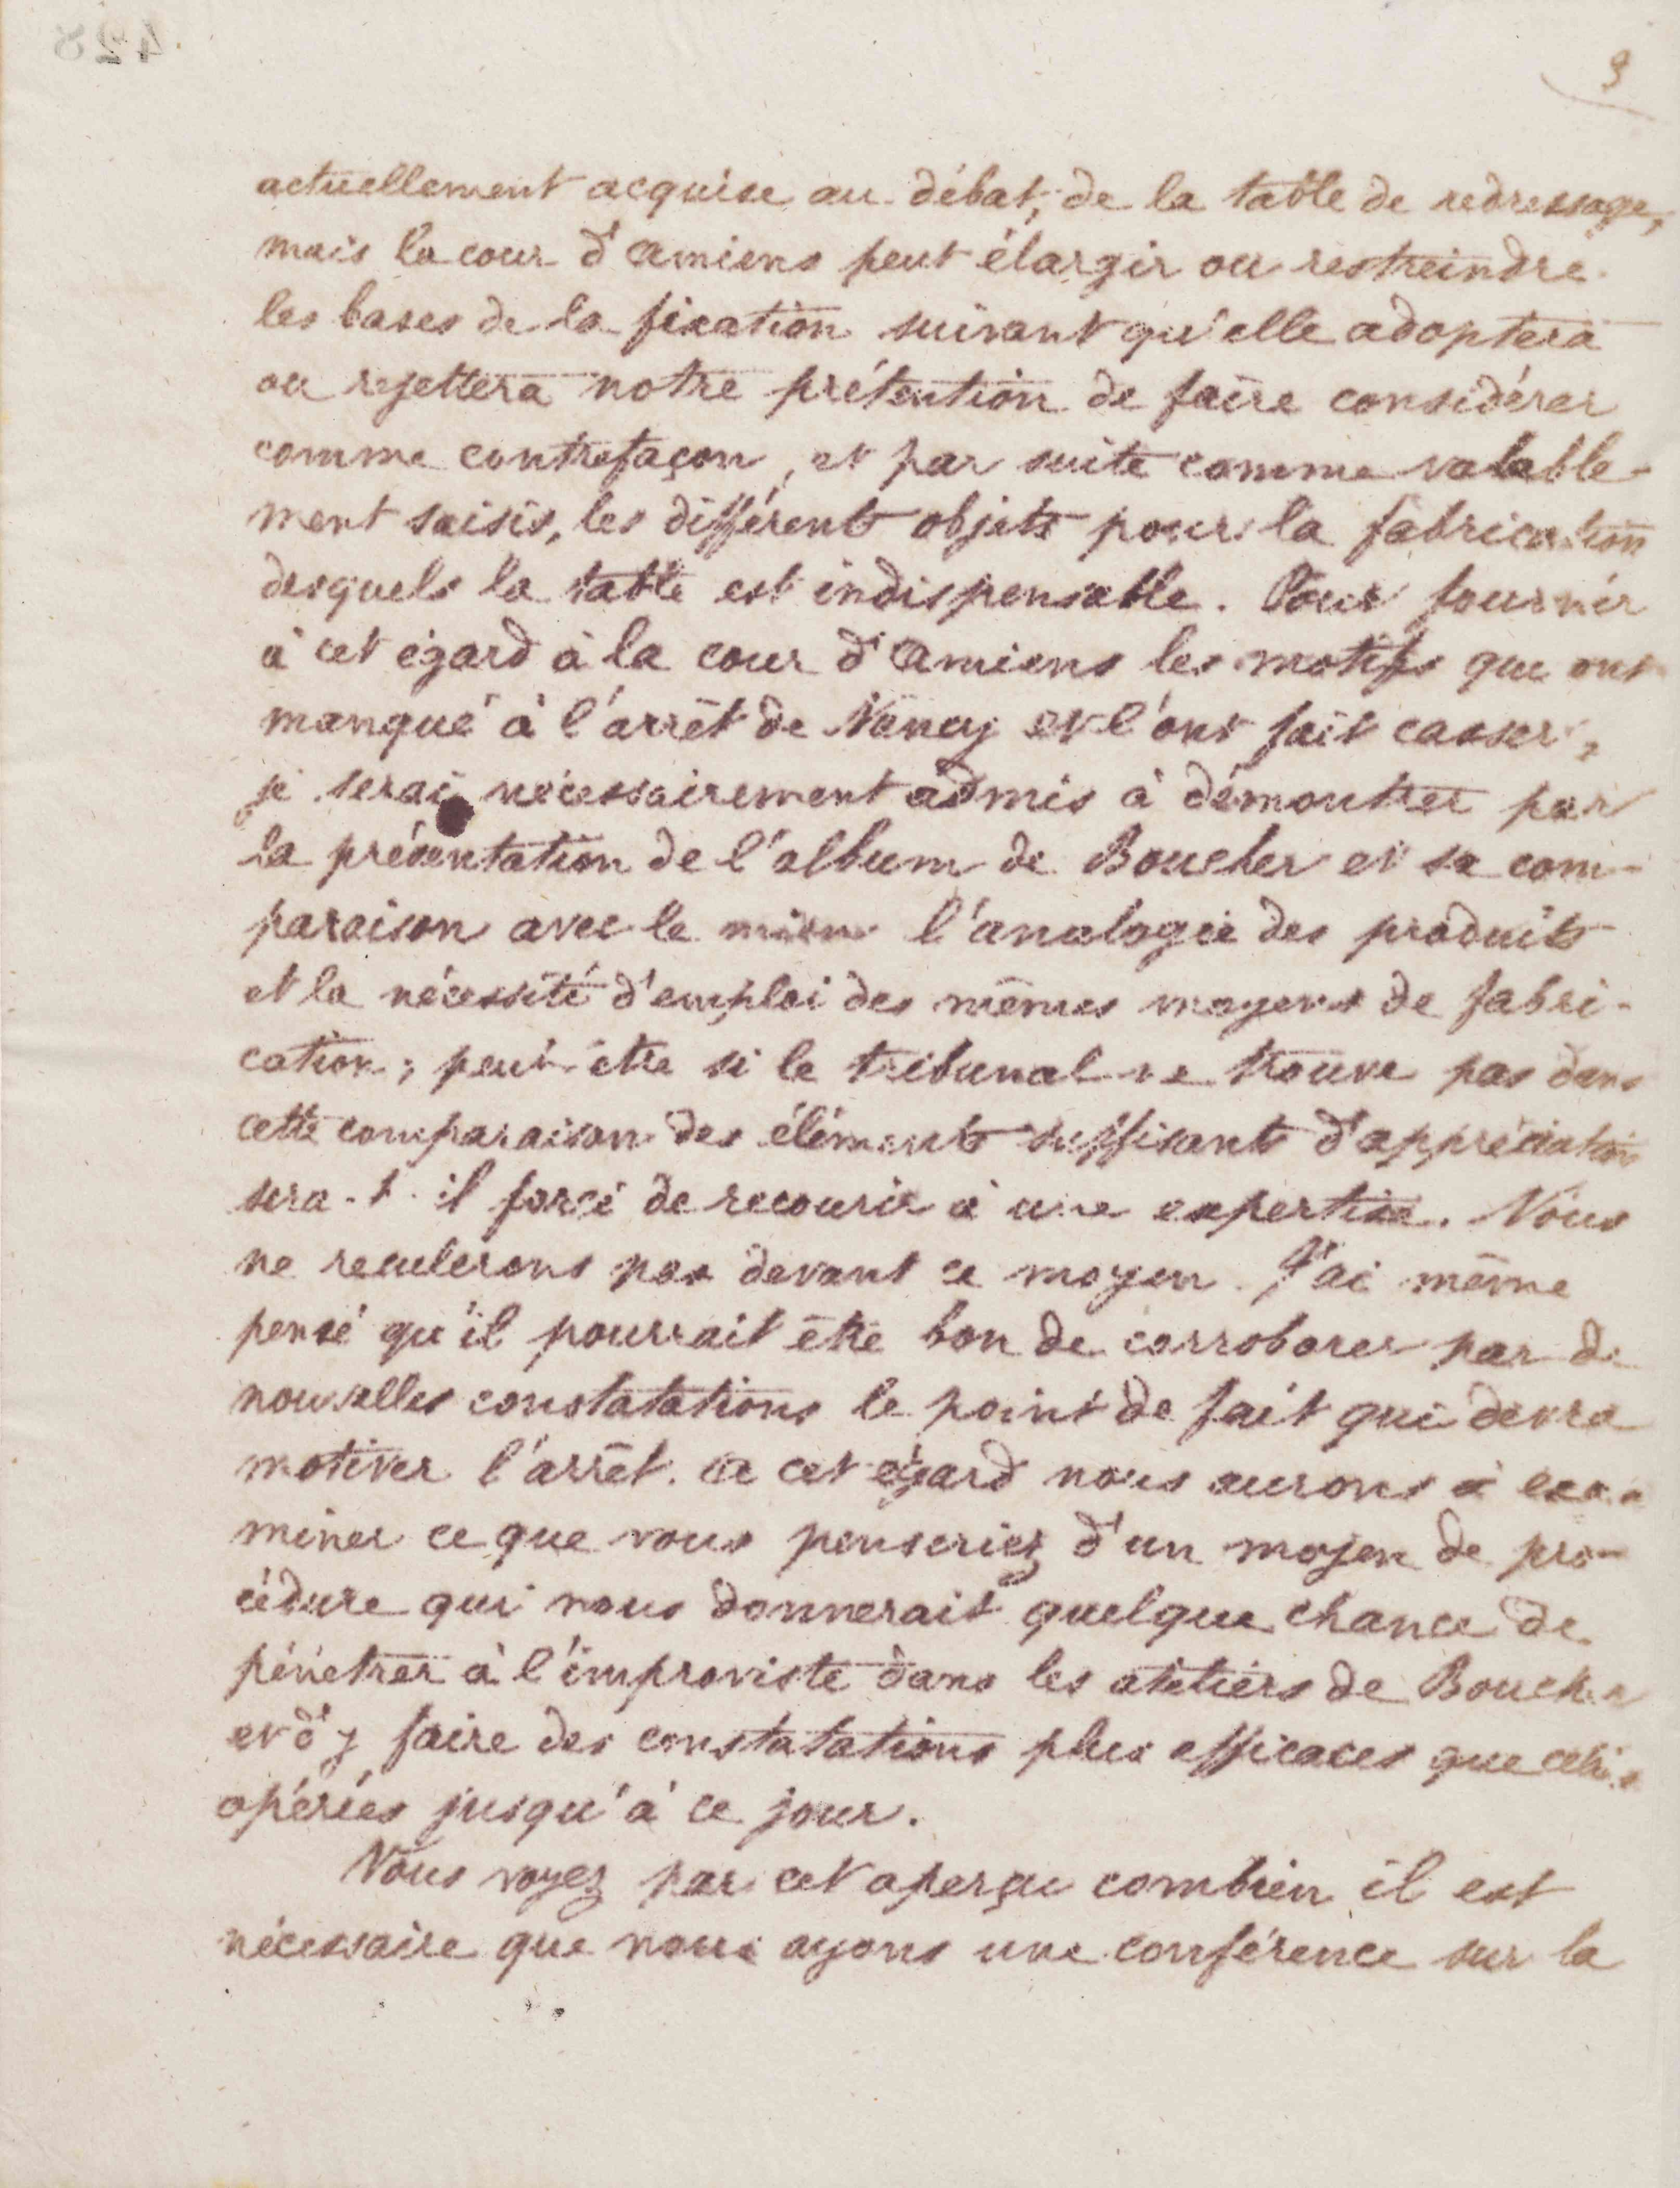 428
3
actuellement acquise au débat, de la table de redressage,
mais la cour d'amiens peut élargir ou restreindre
les bases de la fixation suivant qu'elle adoptera
ou rejettera notre prétention de faire considérer
comme contrefaçon, et par suite comme valable-
ment saisis, les différents objets pour la fabrication
desquels la table est indispensable. Pour fournir
à cet égard à la cour d'amiens les motifs que ont
manqué à l'arrêt de Nancy et l'ont fait casser,
je serai nécessairement admis à démontrer par
la présentation de l'album de Boucher et sa com-
paraison avec le mien l'analogie des produits
et la nécessité d'emploi des mêmes moyens de fabri-
cation; peut-être si le tribunal ne trouve pas dans
cette comparaison des éléments suffisants d'appréciation
sera-t-il forcé de recourir à une expertise. Nous
ne reculerons pas devant ce moyen. J'ai même
pensé qu'il pourrait être bon de corroborer par de
nouvelles constatations le point de fait qui devra
motiver l'arrêt. a cet égard nous aurons à exa
miner ce que vous penseriez d'un moyen de pro-
cédure qui nous donnerait quelque chance de
pénétrer à l'improviste dans les ateliers de Boucher
et d'y faire des constatations plus efficaces que celles
opérées jusqu'à ce jour.
Vous voyez par cet aperçu combien il est
nécessaire que nous ayons une conférence sur la